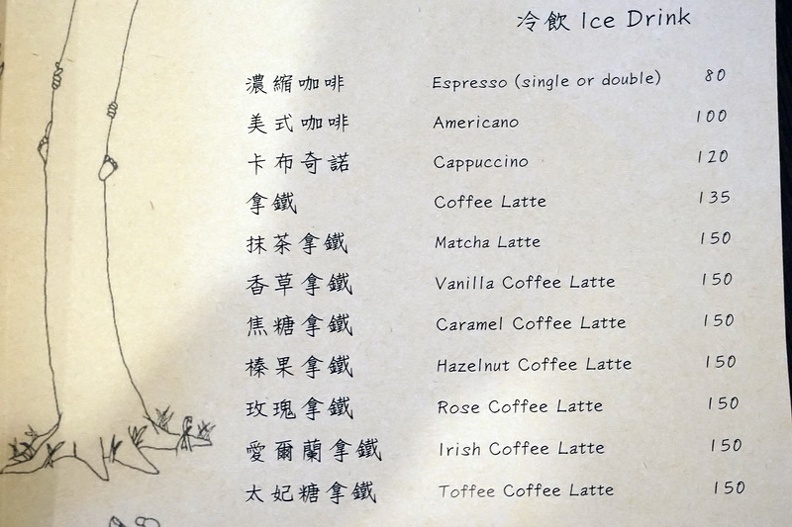 冷飲 Ice Drink
濃縮咖啡 Espresso (single or double) 80
美式咖啡 Americano 100
卡布奇諾 Cappuccino 120
拿鐵 Coffee Latte 135
抹茶拿鐵 Matcha Latte 150
香草拿鐵 Vanilla Coffee Latte 150
焦糖拿鐵 Caramel Coffee Latte 150
榛果拿鐵 Hazelnut Coffee Latte 150
玫瑰拿鐵 Rose Coffee Latte 150
愛爾蘭拿鐵 Irish Coffee Latte 150
太妃糖拿鐵 Toffee Coffee Latte 150